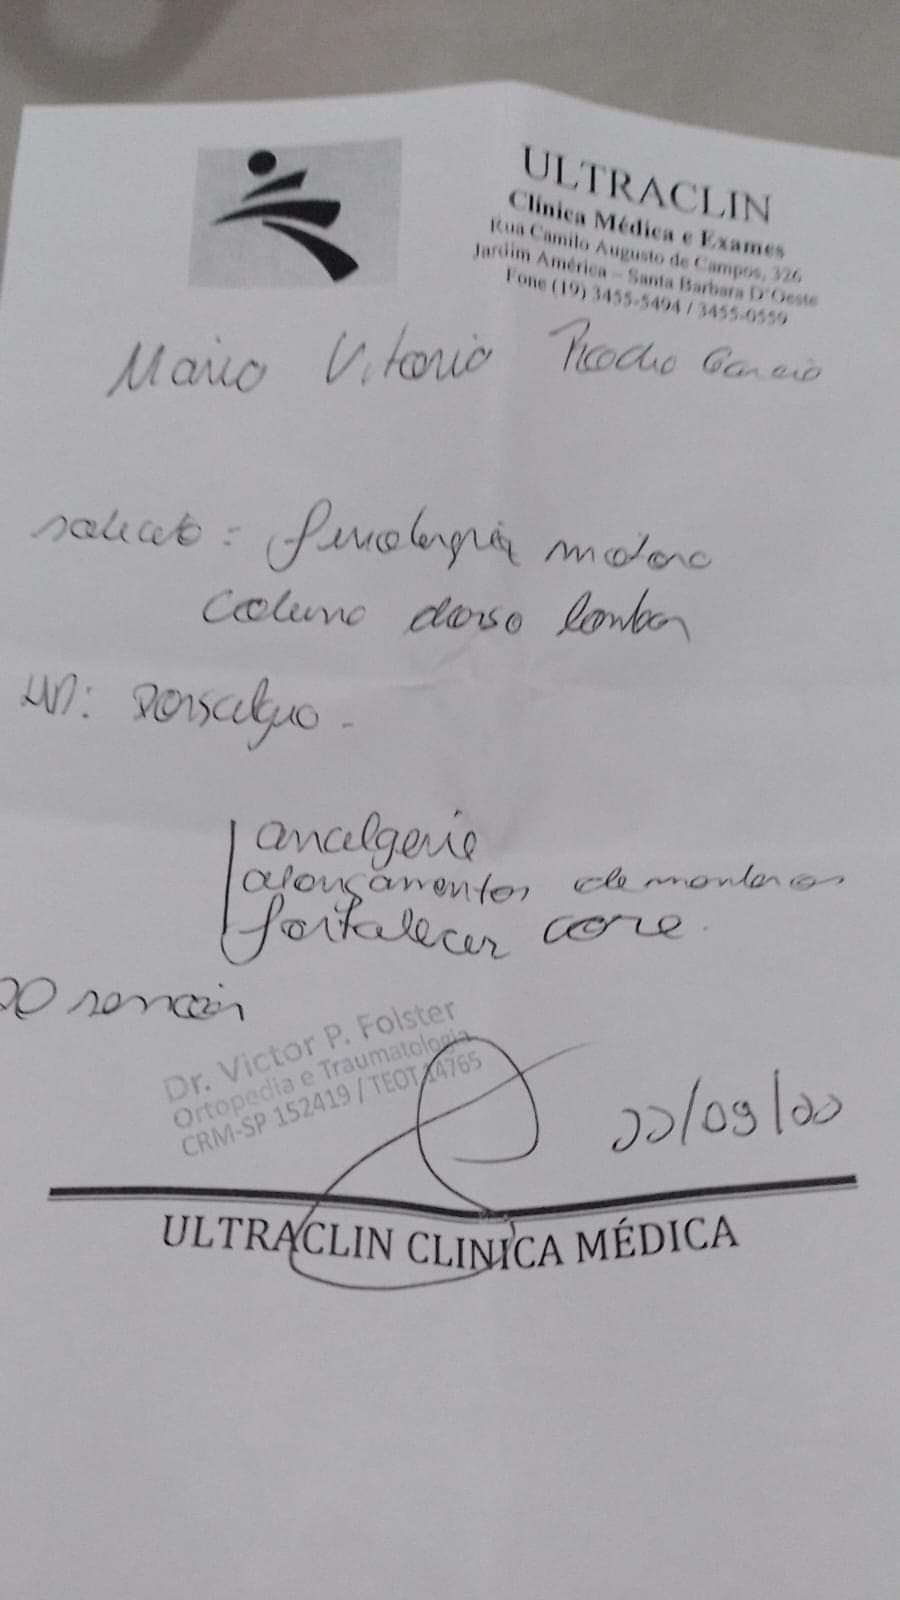 ULTRACLIN
Clínica Médica e Exames
Rua Camilo Augusto de Campos, 326
Jardim América – Santa Barbara D'Oeste
Fone (19) 3455-5494 / 3455-0559
Maria Vitoria Garcia
solicito: fisioterapia motora
coluna dorso lombar
HD: Dorsalgia
analgesia
alongamentos
fortalecer core
Dr. Victor P. Folster
Ortopedia e Traumatologia
CRM-SP 152419 / TEOT 14765
22/09/22
ULTRACLIN CLINICA MÉDICA